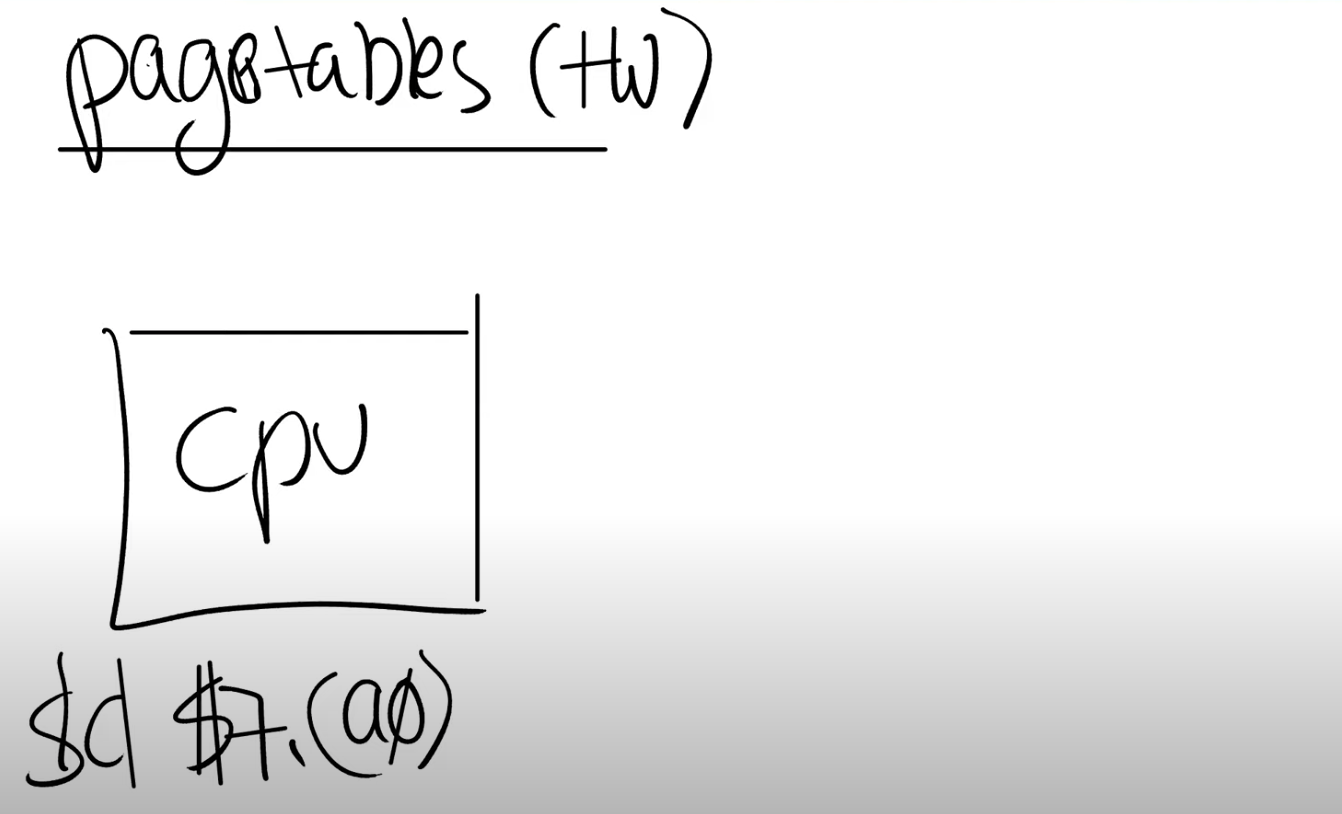 pagetables (HW)
cpu
sd $7,(a0)